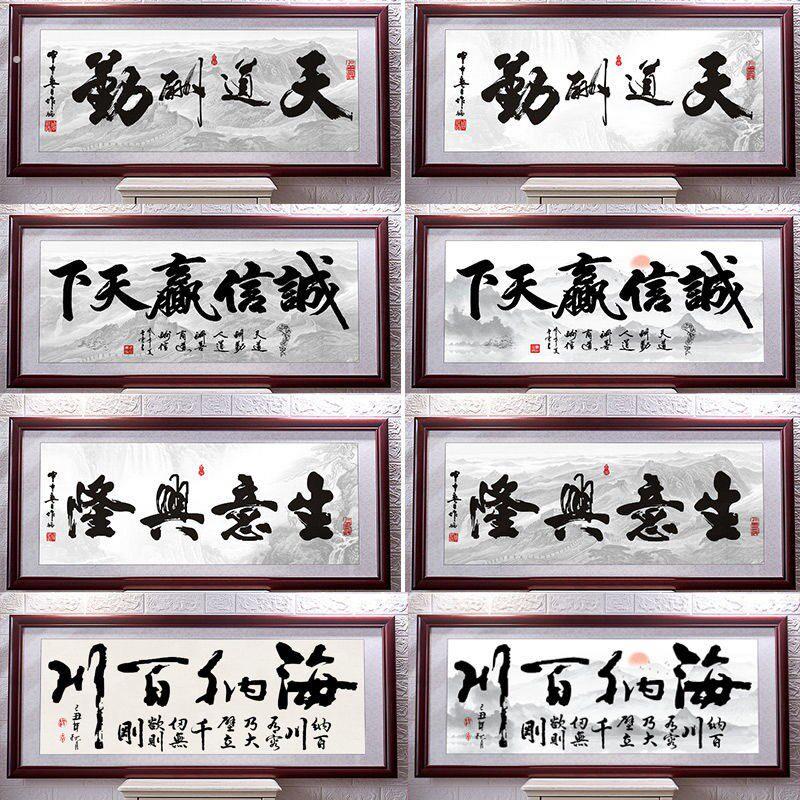 天道酬勤
天道酬勤
誠信贏天下
天道酬勤人道酬善商道酬信
誠信贏天下
天道酬勤人道酬善商道酬信
生意興隆
生意興隆
海納百川
納百川有容乃大壁立千仞無欲則剛
己丑年秋月
海納百川
納百川有容乃大壁立千仞無欲則剛
己丑年秋月